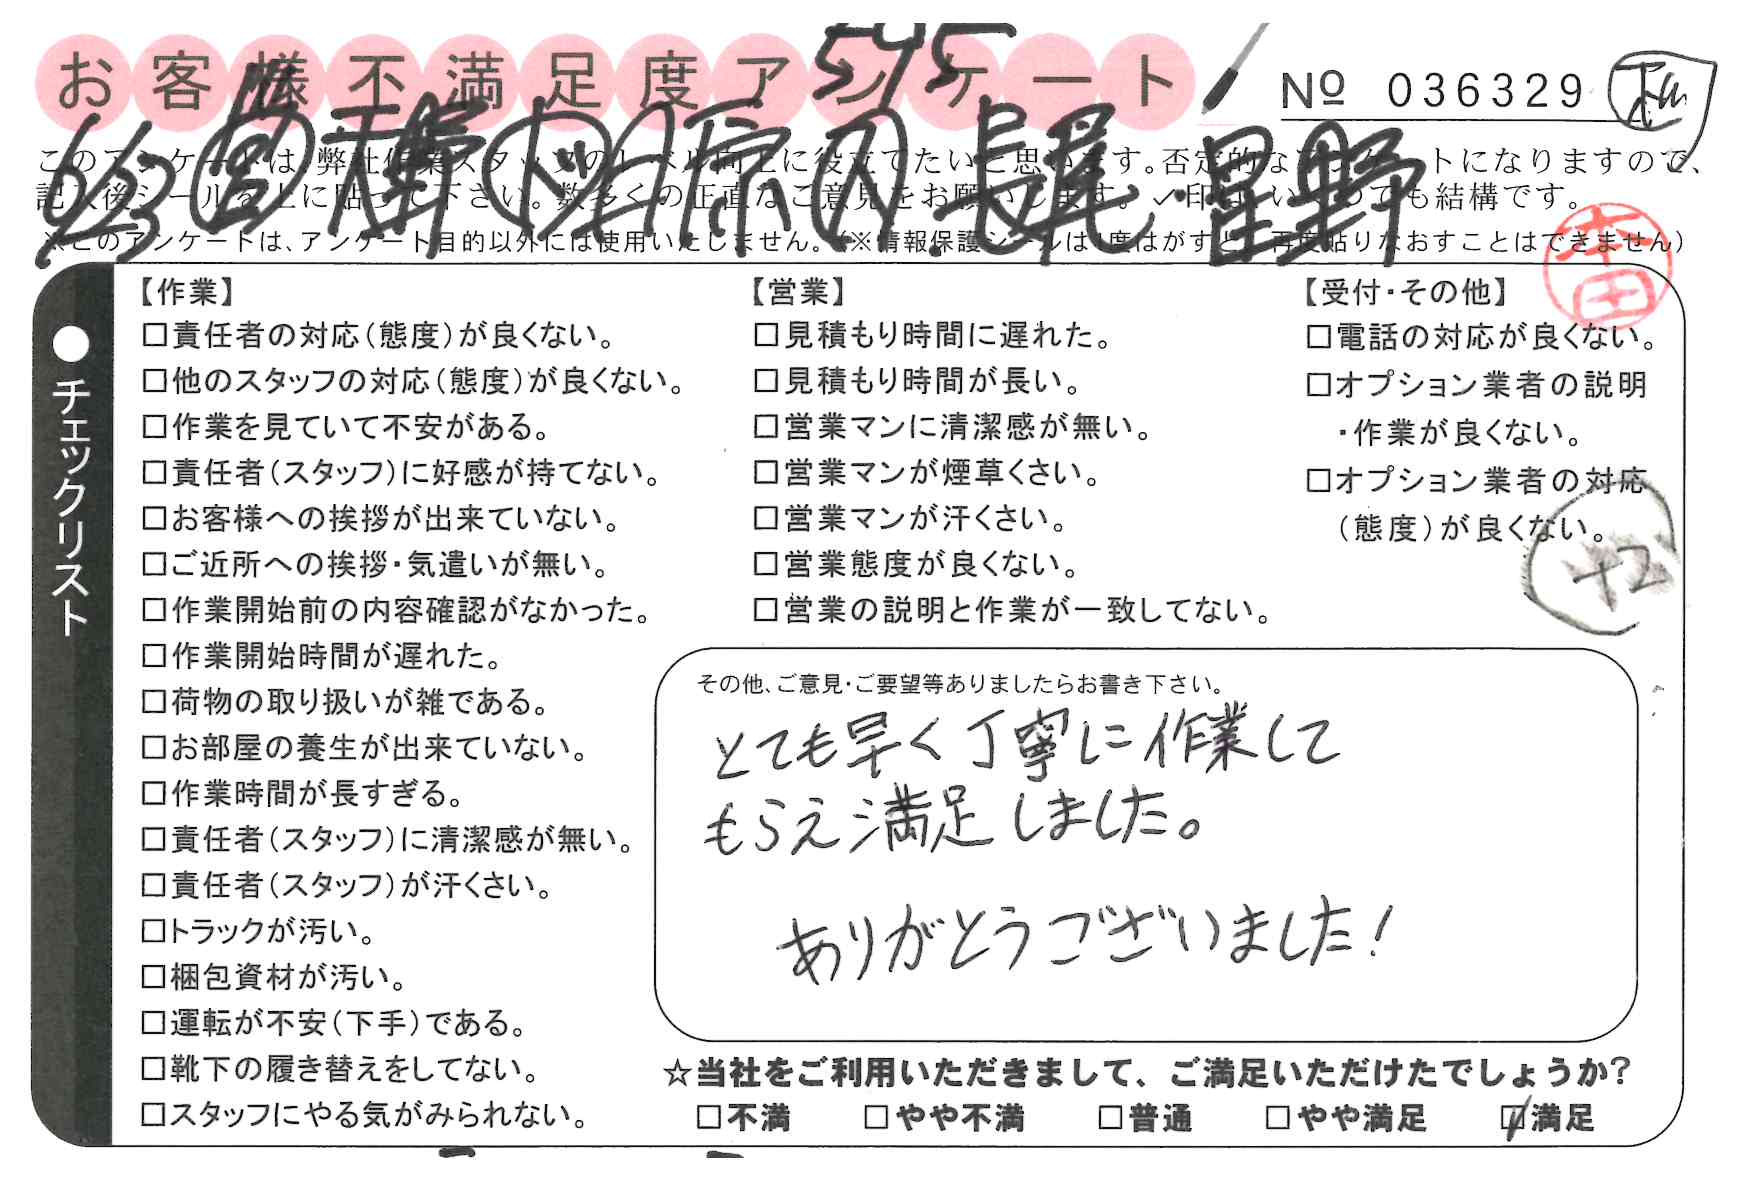 お客様不満足度アンケート
545
№ 036329
このアンケートは、弊社作業スタッフのレベル向上に役立てたいと思います。否定的なアンケートになりますので、
記入後シールを上に貼って下さい。数多くの正直なご意見をお願いします。✓印は、いくつでも結構です。
※このアンケートは、アンケート目的以外には使用いたしません。(※情報保護シールは1度はがすと、再度貼りなおすことはできません)
6/3 長尾・星野
本田
●チェックリスト
【作業】
□責任者の対応(態度)が良くない。
□他のスタッフの対応(態度)が良くない。
□作業を見ていて不安がある。
□責任者(スタッフ)に好感が持てない。
□お客様への挨拶が出来ていない。
□ご近所への挨拶・気遣いが無い。
□作業開始前の内容確認がなかった。
□作業開始時間が遅れた。
□荷物の取り扱いが雑である。
□お部屋の養生が出来ていない。
□作業時間が長すぎる。
□責任者(スタッフ)に清潔感が無い。
□責任者(スタッフ)が汗くさい。
□トラックが汚い。
□梱包資材が汚い。
□運転が不安(下手)である。
□靴下の履き替えをしてない。
□スタッフにやる気がみられない。
【営業】
□見積もり時間に遅れた。
□見積もり時間が長い。
□営業マンに清潔感が無い。
□営業マンが煙草くさい。
□営業マンが汗くさい。
□営業態度が良くない。
□営業の説明と作業が一致してない。
【受付・その他】
□電話の対応が良くない。
□オプション業者の説明
・作業が良くない。
□オプション業者の対応
(態度)が良くない。
+2
その他、ご意見・ご要望等ありましたらお書き下さい。
とても早く丁寧に作業して
もらえ満足しました。
ありがとうございました!
☆当社をご利用いただきまして、ご満足いただけたでしょうか?
□不満 □やや不満 □普通 □やや満足 ☑満足